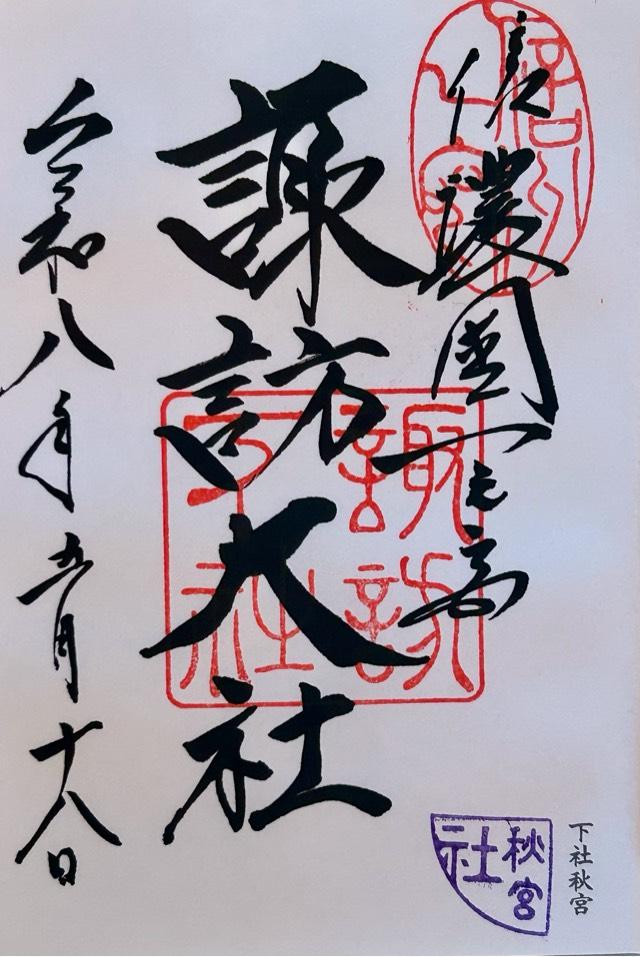 信濃國一之宮
諏訪大社
諏訪
大社
令和八年五月十八日
秋宮
社
下社秋宮